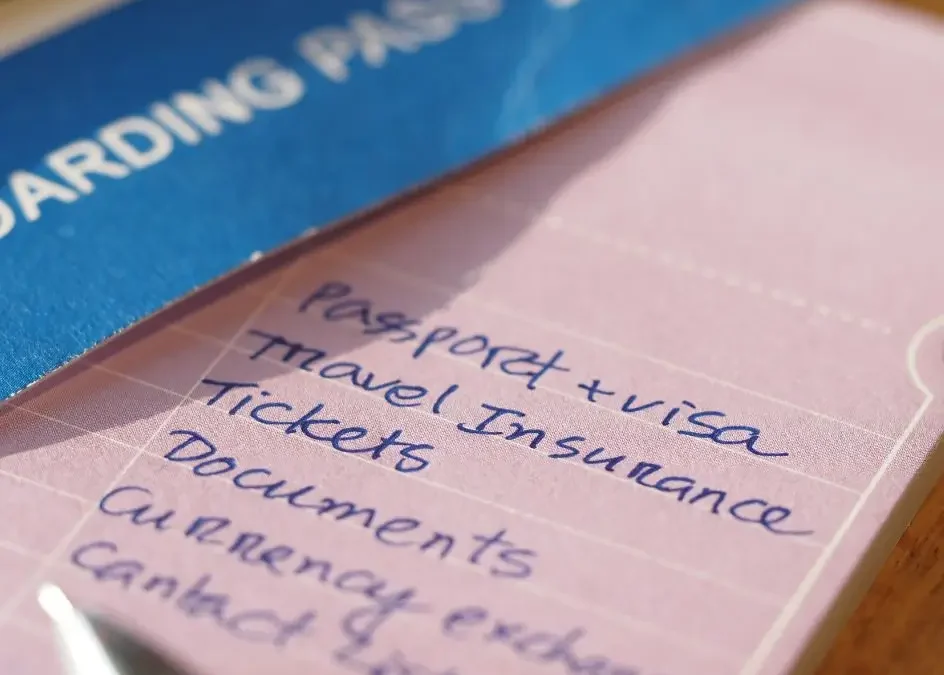 BOARDING PASS
Passport + visa
Travel Insurance
Tickets
Documents
Currency exchange
Contact List